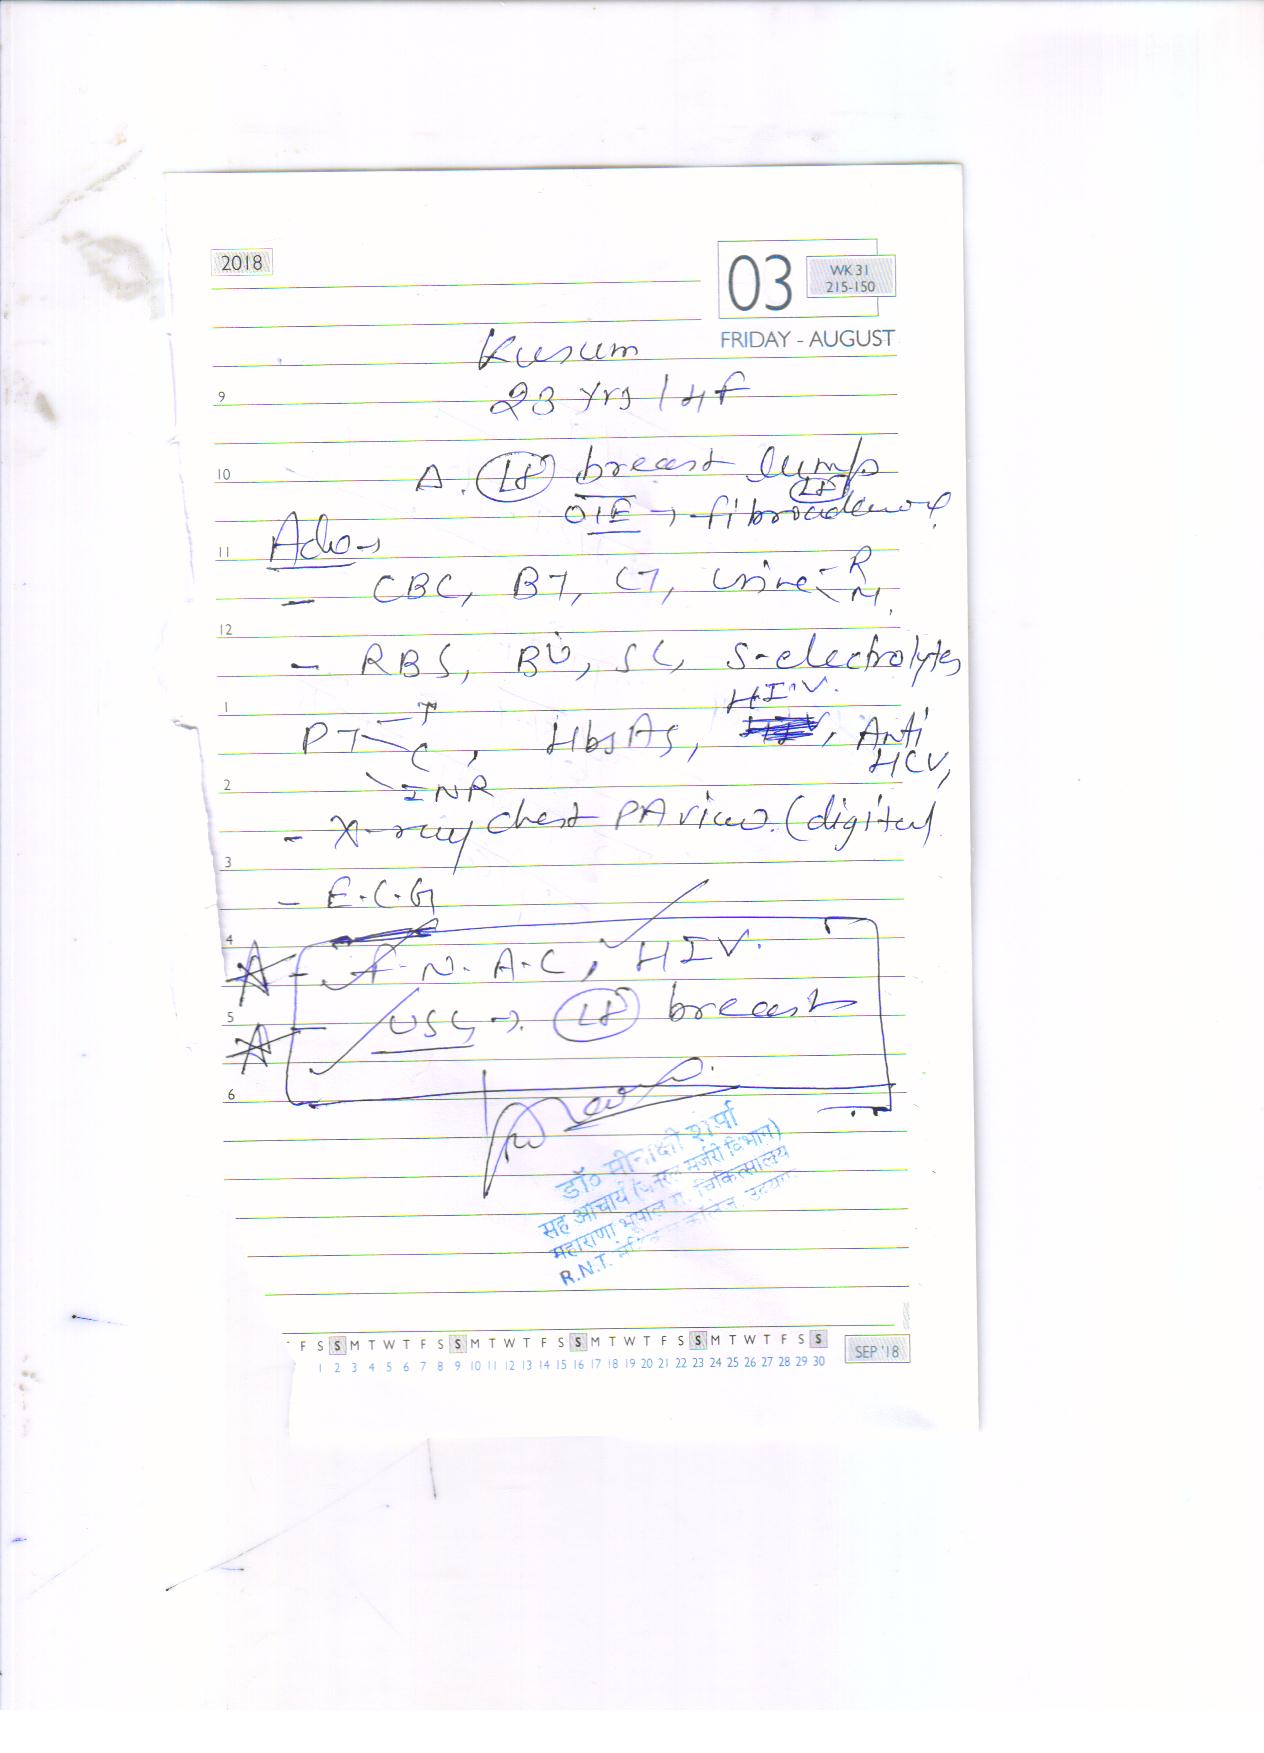 2018
03
WK 31
215-150
FRIDAY - AUGUST
Kusum
9
23 yrs / H F
10
Δ. Lt breast lump
O/E → Lt fibroadenoma
Adv →
11
- CBC, BT, CT, Urine - R
M.
12
- RBS, BU, SC, S-electrolytes
1
PT - T
C, HbsAg, H.I.V., Anti HCV,
2
INR
- X-ray chest PA view. (digital)
3
- E.C.G
4
- F.N.A.C, HIV.
5
- USG →. Lt breast
6
डॉ० मीनाक्षी शर्मा
सह आचार्य (जनरल सर्जरी विभाग)
महाराणा भूपाल रा. चिकित्सालय
R.N.T.
F S S M T W T F S S M T W T F S S M T W T F S S M T W T F S S
1 2 3 4 5 6 7 8 9 10 11 12 13 14 15 16 17 18 19 20 21 22 23 24 25 26 27 28 29 30
SEP '18